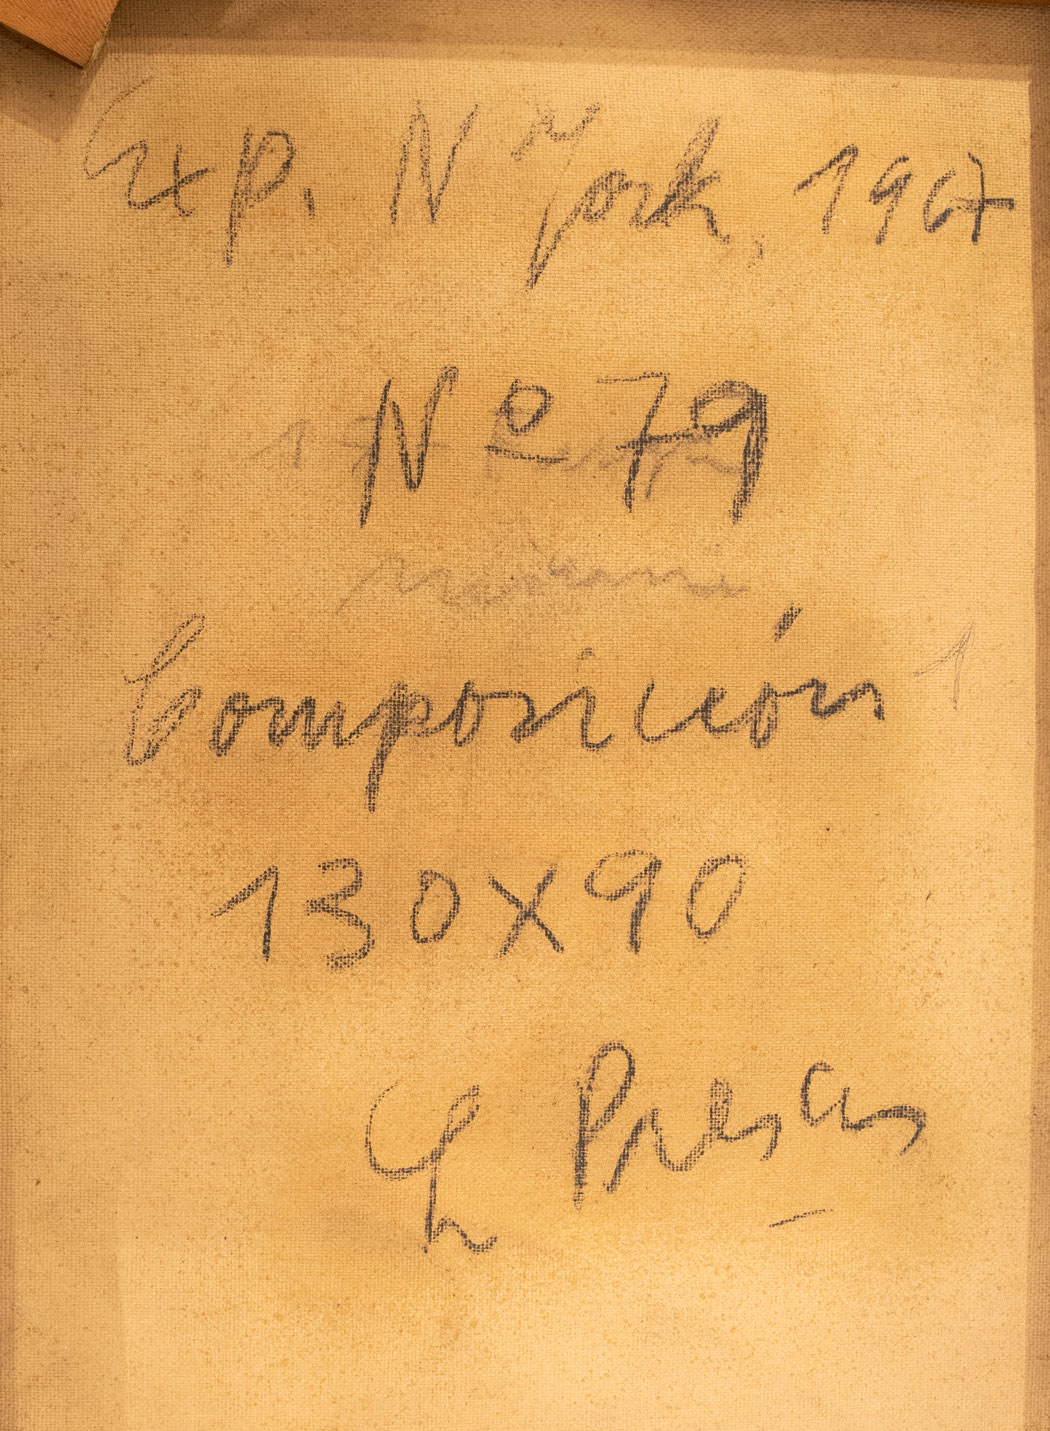 Exp. N York, 1967
Nº 79
Composición 1
130X90
Presas